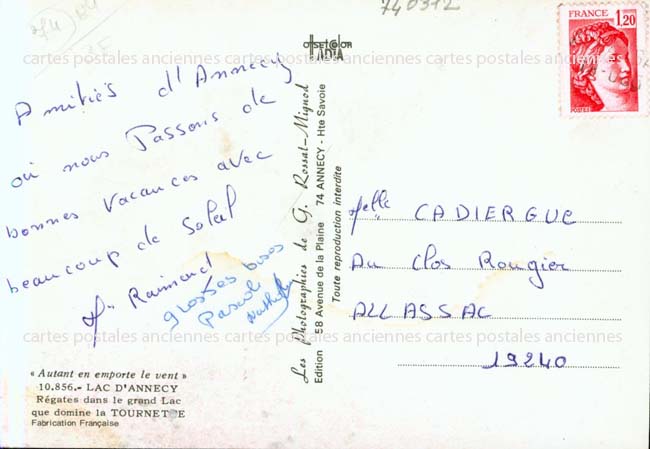 740312
OFFSETCOLOR
IRIS
FRANCE
1,20
POSTES
cartes postales anciennes cartes postales anciennes cartes postales anciennes
Amitiés d'Annecy
où nous Passons de
bonnes vacances avec
beaucoup de Soleil
Raimond
grosses bises
Pascal
Nathaly
Les Photographies de G. Rossat-Mignod
Edition 58 Avenue de la Plaine 74 ANNECY - Hte Savoie
Toute reproduction interdite
Melle CADIERGUE
Au Clos Rougier
ALLASSAC
19240
cartes postales anciennes cartes postales anciennes cartes postales anciennes
« Autant en emporte le vent »
10.856.- LAC D'ANNECY
Régates dans le grand Lac
que domine la TOURNETTE
Fabrication Française